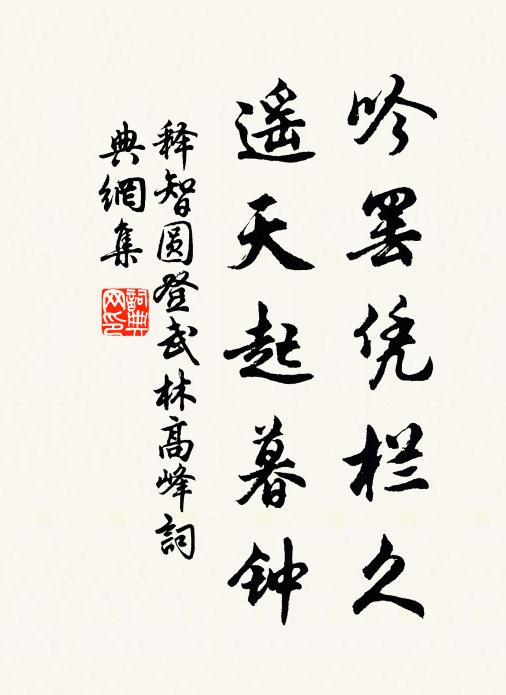 吟罢凭栏久
遥天起暮钟
释智圆登武林高峰詞
典網集
詞典
网印